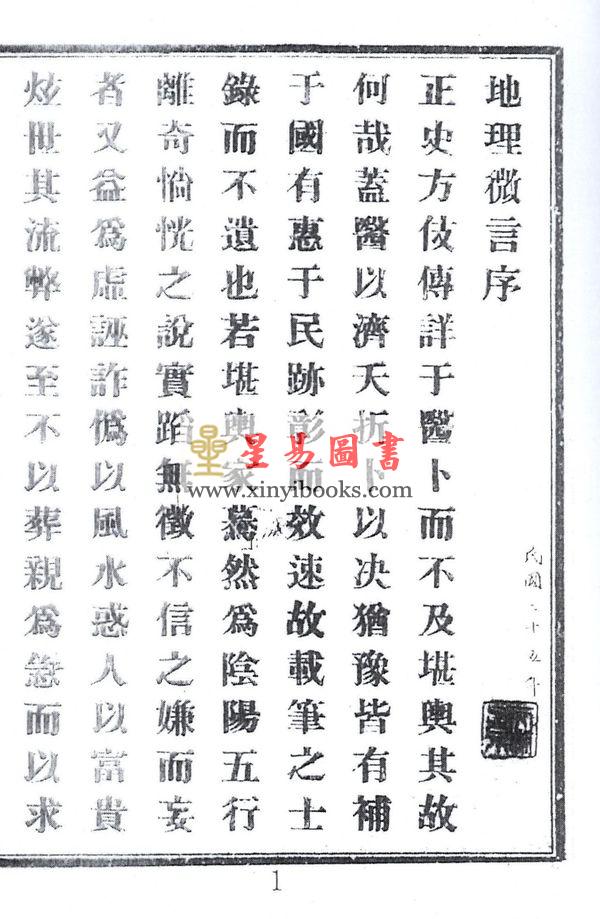 地理微言序
正史方伎傳詳于醫卜而不及堪輿其故
何哉蓋醫以濟夭折卜以决猶豫皆有補
于國有惠于民跡彰而效速故載筆之士
錄而不遺也若堪輿家 然爲陰陽五行
離奇惝恍之說實蹈無徵不信之嫌而妄
者又益爲虛誣詐僞以風水惑人以富貴
炫世其流弊遂至不以葬親爲急而以求
民國二十五年
星易圖書
www.xinyibooks.com
1